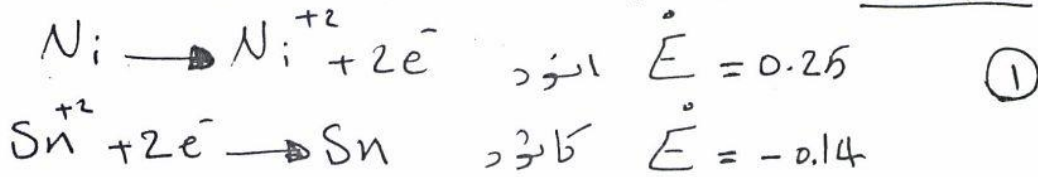 Ni → Ni⁺² + 2e⁻ انۆد E° = 0.25 ①
Sn⁺² + 2e⁻ → Sn کاثۆد E° = -0.14